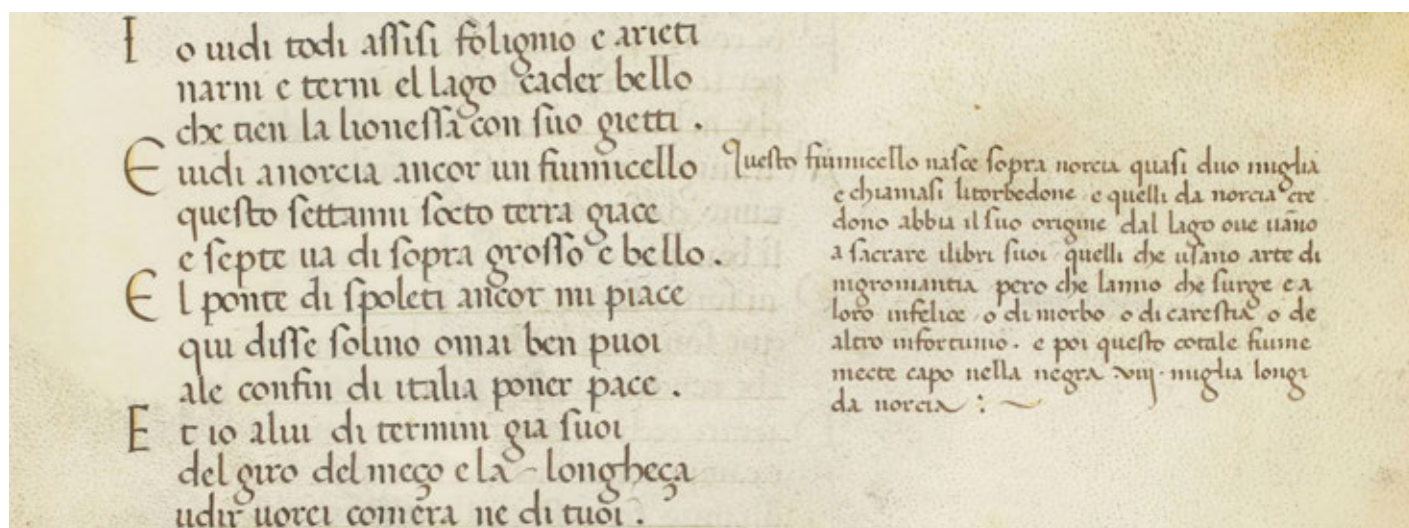 I o uidi todi assisi foligno e arieti
narni e terni el lago cader bello
che tien la lionessa con suo gietti .
E uidi anorcia ancor un fiumicello
questo settanni socto terra giace
e septe ua di sopra grosso e bello .
E l ponte di spoleti ancor mi piace
qui disse solino omai ben puoi
ale confin di italia poner pace .
E t io alui di termini gia suoi
del giro del meço e la longheça
udir uorei comera ne di tuoi .
Questo fiumicello nasce sopra norcia quasi duo miglia
e chiamasi litorbedone e quelli da norcia cre
dono abbia il suo origine dal lago oue uāno
a sacrare ilibri suoi quelli che usano arte di
nigromantia pero che lanno che surge e a
loro infelice o di morbo o di carestia o de
altro infortunio . e poi questo cotale fiume
mecte capo nella negra viij miglia longi
da norcia :